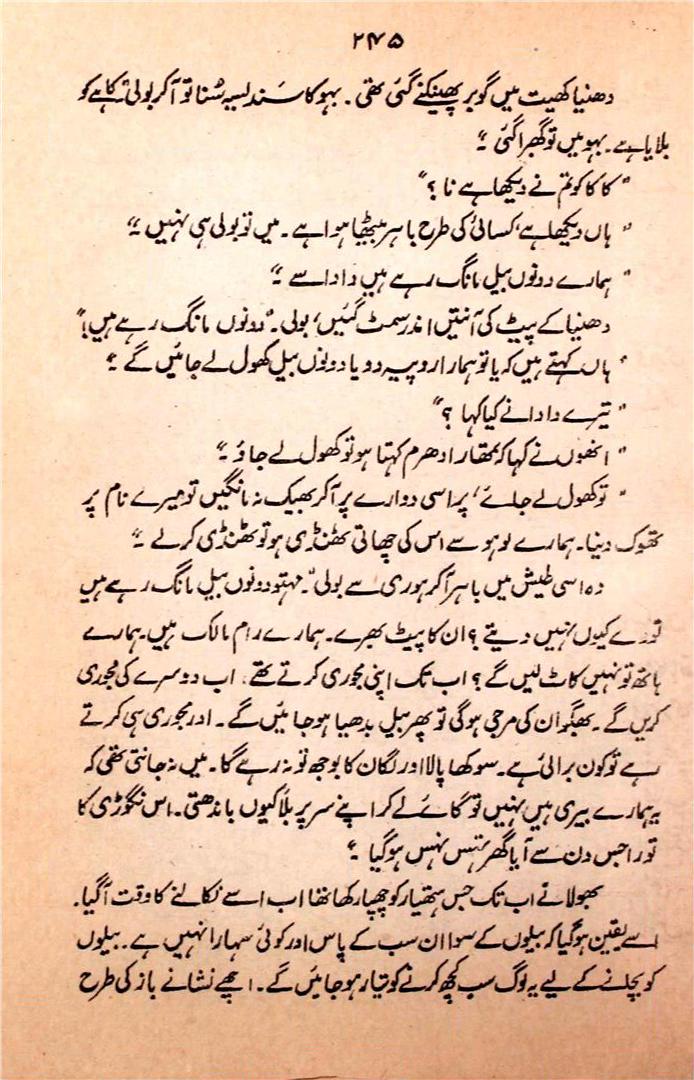 ۲۴۵
دھنیا کھیت میں گوبر پھینکنے گئی تھی۔ بہو کا سندیسہ سُنا تو آکر بولی ”کاہے کو
بلایا ہے۔ بہو میں تو گھبرا گئی ۔“
”کاکا کو تم نے دیکھا ہے نا؟“
”ہاں دیکھا ہے، کسائی کی طرح باہر بیٹھا ہوا ہے۔ میں تو بولی ہی نہیں ۔“
”ہمارے دونوں بیل مانگ رہے ہیں دادا سے ۔“
دھنیا کے پیٹ کی آنتیں اندر سمٹ گئیں، بولی۔ ”دونوں مانگ رہے ہیں!“
”ہاں کہتے ہیں کہ یا تو ہمارا روپیہ دو یا دونوں بیل کھول لے جائیں گے ۔“
”تیرے دادا نے کیا کہا ؟“
”انھوں نے کہا کہ تمھارا دھرم کہتا ہو تو کھول لے جاؤ ۔“
”تو کھول لے جائے، پر اسی دوارے پر آکر بھیک نہ مانگیں تو میرے نام پر
تھوک دینا۔ ہمارے لوہو سے اس کی چھاتی ٹھنڈی ہو تو ٹھنڈی کرلے ۔“
وہ اسی طیش میں باہر آکر ہوری سے بولی ”۔ مہتو دونوں بیل مانگ رہے ہیں
تو دے کیوں نہیں دیتے ؟ ان کا پیٹ بھرے۔ ہمارے رام مالک ہیں۔ ہمارے
ہاتھ تو نہیں کاٹ لیں گے ؟ اب تک اپنی مجری کرتے تھے، اب دوسرے کی مجری
کریں گے۔ بھگوان کی مرجی ہوگی تو پھر بیل بدھیا ہوجائیں گے۔ اور مجوری ہی کرتے
رہے تو کون برائی ہے۔ سوکھا پالا اور لگان کا بوجھ تو نہ رہے گا۔ میں نہ جانتی تھی کہ
یہ ہمارے بیری ہیں نہیں تو گائے لے کر اپنے سر پر بلا کیوں باندھتی۔ اس نگوڑی کا
تورا جس دن سے آیا گھر تہس نہس ہوگیا ۔“
بھولا نے اب تک جس ہتھیار کو چھپا رکھا تھا اب اسے نکالنے کا وقت آگیا۔
اسے یقین ہوگیا کہ بیلوں کے سوا ان سب کے پاس اور کوئی سہارا نہیں ہے۔ بیلوں
کو بچانے کے لیے یہ لوگ سب کچھ کرنے کو تیار ہوجائیں گے۔ اچھے نشانے باز کی طرح